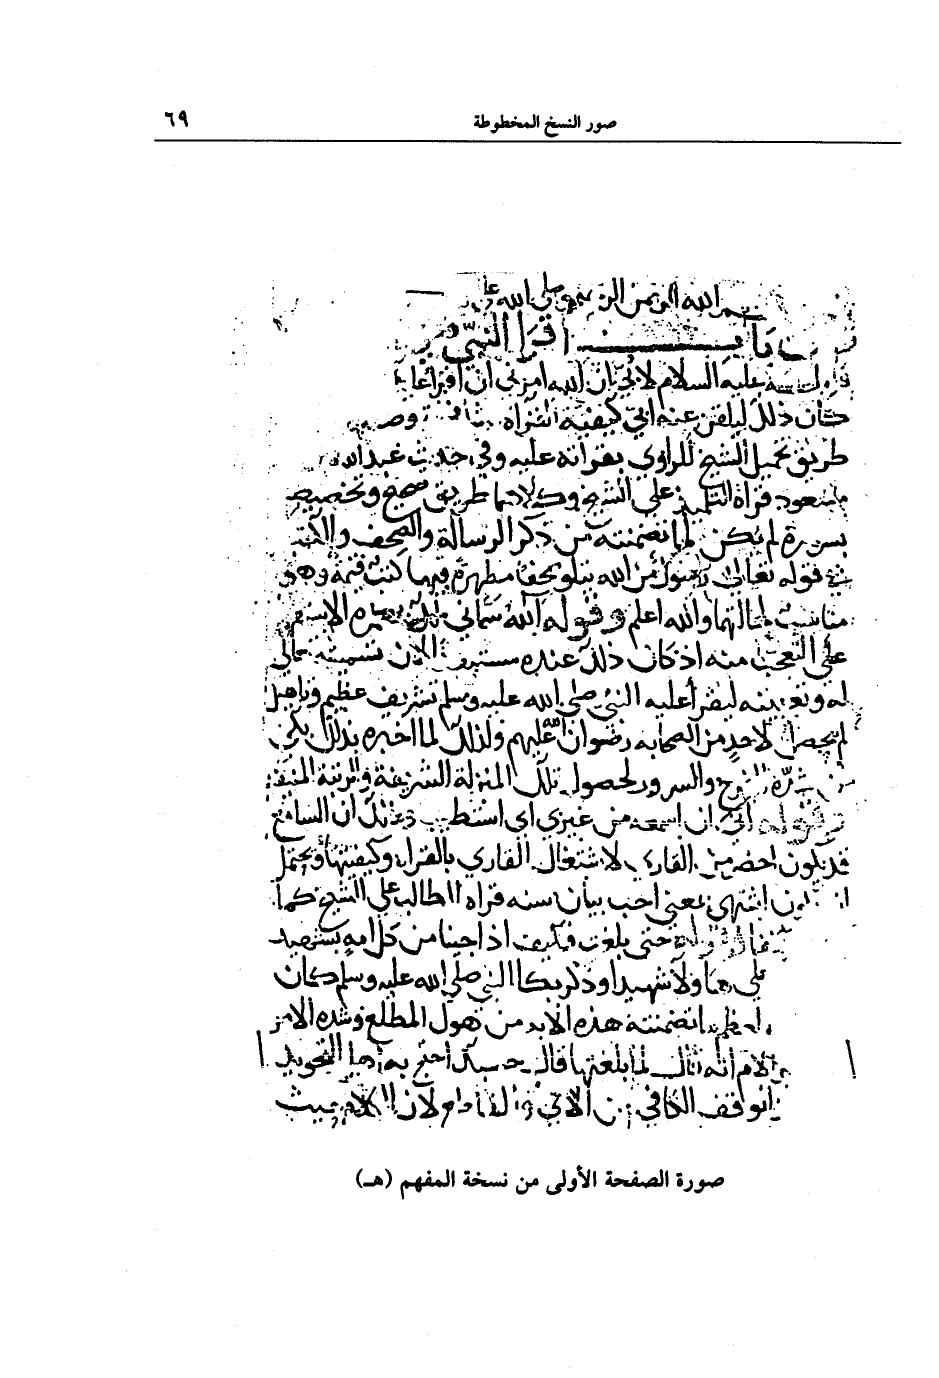 صور النسخ المخطوطة
٦٩
الله الرحمن الرحيم صلى الله
باب اقرأ النبي
عليه السلام لأبي ان الله امرني ان اقرأ
كان ذلك ليلقن عنه ابي كيفية القراه
طريق تحميل الشيخ للراوي بقراته عليه وفي حديث عبد الله
مسعود قراة التلميذ على الشيخ وكلاهما طريق صحيح وتخصيص
بسورة لم يكن لما تضمنته من ذكر الرسالة والصحف والكتب
في قوله تعالى رسول من الله يتلو صحفا مطهرة فيها كتب قيمة وهذه
مناسبة لحالهما والله اعلم وقوله آلله سماني لك بهمزه الاستفهام
على التعجب منه اذ كان ذلك عنده مستبعدا لان تسميته تعالى
له وتعيينه ليقرأ عليه النبي صلى الله عليه وسلم تشريف عظيم وتاهيل
لم يحصل لأحد من الصحابه رضوان الله عليهم ولذلك لما اخبره بذلك بكى
من شدة الفرح والسرور لحصول تلك المنزلة الشريفة والرتبة المنيفة
ان اسمعه من غيري اي استطيب ذلك وذلك ان السامع
قد يكون احضر من القاري لاشتغال القاري بالقراه وكيفيتها ويحتمل
ان يكون اشتهي بمعنى احب بيان سنه قراه الطالب على الشيخ كما
حتى بلغت فكيف اذا جينا من كل امه بشهيد
على هاولا شهيدا وذكر بكا النبي صلى الله عليه وسلم كان
لعظيم ما تضمنته هذه الايه من هول المطلع وشده الامر
انه قال لما بلغتها قال حسبك احتج به اهل التجويد
الكافي لان الكلام بحيث
صورة الصفحة الأولى من نسخة المفهم (هـ)